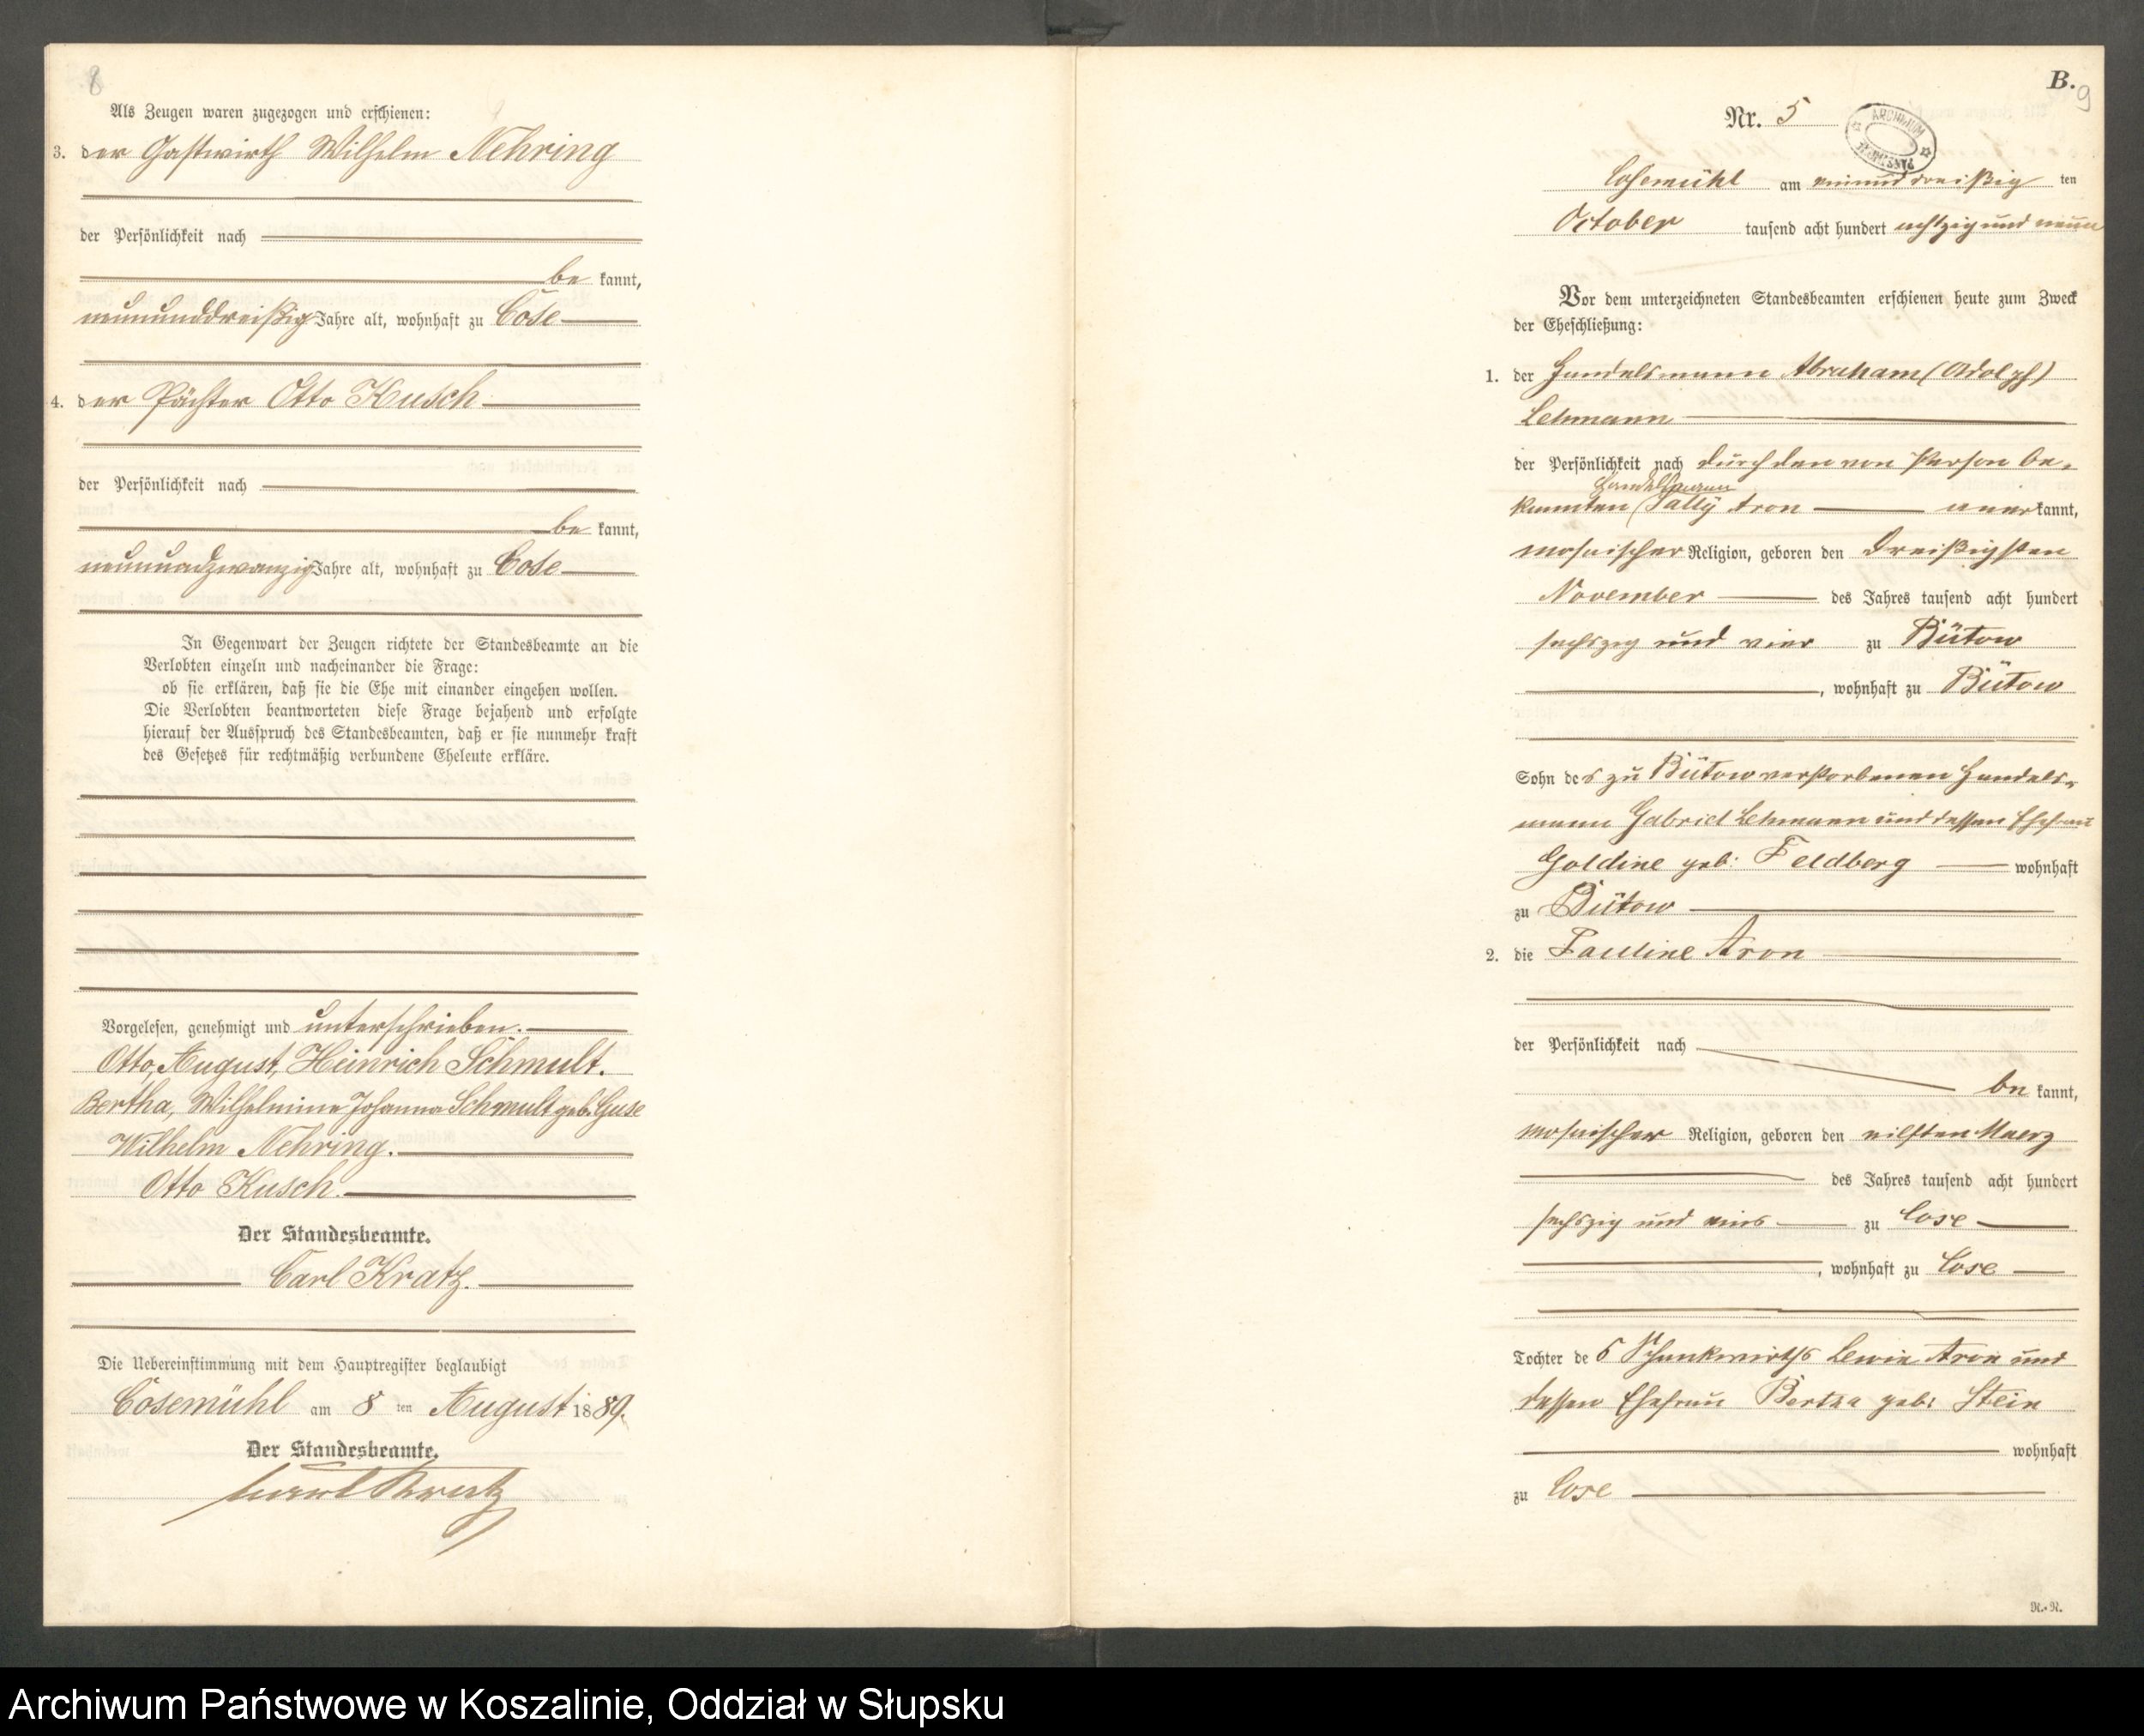 8
Als Zeugen waren zugezogen und erschienen:
3. der Gastwirth Wilhelm Nehring
der Persönlichkeit nach
be kannt,
neununddreißig Jahre alt, wohnhaft zu Cose
4. der Pächter Otto Kusch
der Persönlichkeit nach
be kannt,
neunundzwanzig Jahre alt, wohnhaft zu Cose
In Gegenwart der Zeugen richtete der Standesbeamte an die
Verlobten einzeln und nacheinander die Frage:
ob sie erklären, daß sie die Ehe mit einander eingehen wollen.
Die Verlobten beantworteten diese Frage bejahend und erfolgte
hierauf der Ausspruch des Standesbeamten, daß er sie nunmehr kraft
des Gesetzes für rechtmäßig verbundene Eheleute erkläre.
Vorgelesen, genehmigt und unterschrieben.
Otto, August, Heinrich Schmult.
Bertha, Wilhelmine Johanna Schmult geb. Guse
Wilhelm Nehring.
Otto Kusch.
Der Standesbeamte.
Carl Kratz.
Die Uebereinstimmung mit dem Hauptregister beglaubigt
Cosemühl am 8 ten August 1889.
Der Standesbeamte.
Carl Kratz
B.
9
Nr. 5
ARCHIWUM PAŃSTWOWE
Cosemühl am einunddreißig ten
October tausend acht hundert achtzig und neun
Vor dem unterzeichneten Standesbeamten erschienen heute zum Zweck
der Eheschließung:
1. der Handelsmann Abraham (Adolph)
Lehmann
der Persönlichkeit nach durch den von Person be-
Handelsmann
kannten Sally Aron anerkannt,
mosaischer Religion, geboren den dreißigsten
November des Jahres tausend acht hundert
sechszig und vier zu Bütow
, wohnhaft zu Bütow
Sohn des zu Bütow verstorbenen Handels-
mann Gabriel Lehmann und dessen Ehefrau
Goldine geb: Feldberg wohnhaft
zu Bütow
2. die Pauline Aron
der Persönlichkeit nach
be kannt,
mosaischer Religion, geboren den eilften Maerz
des Jahres tausend acht hundert
sechszig und eins zu Cose
, wohnhaft zu Cose
Tochter des Schankwirths Lewin Aron und
dessen Ehefrau Bertha geb: Stein
wohnhaft
zu Cose
N.-N.
Archiwum Państwowe w Koszalinie, Oddział w Słupsku